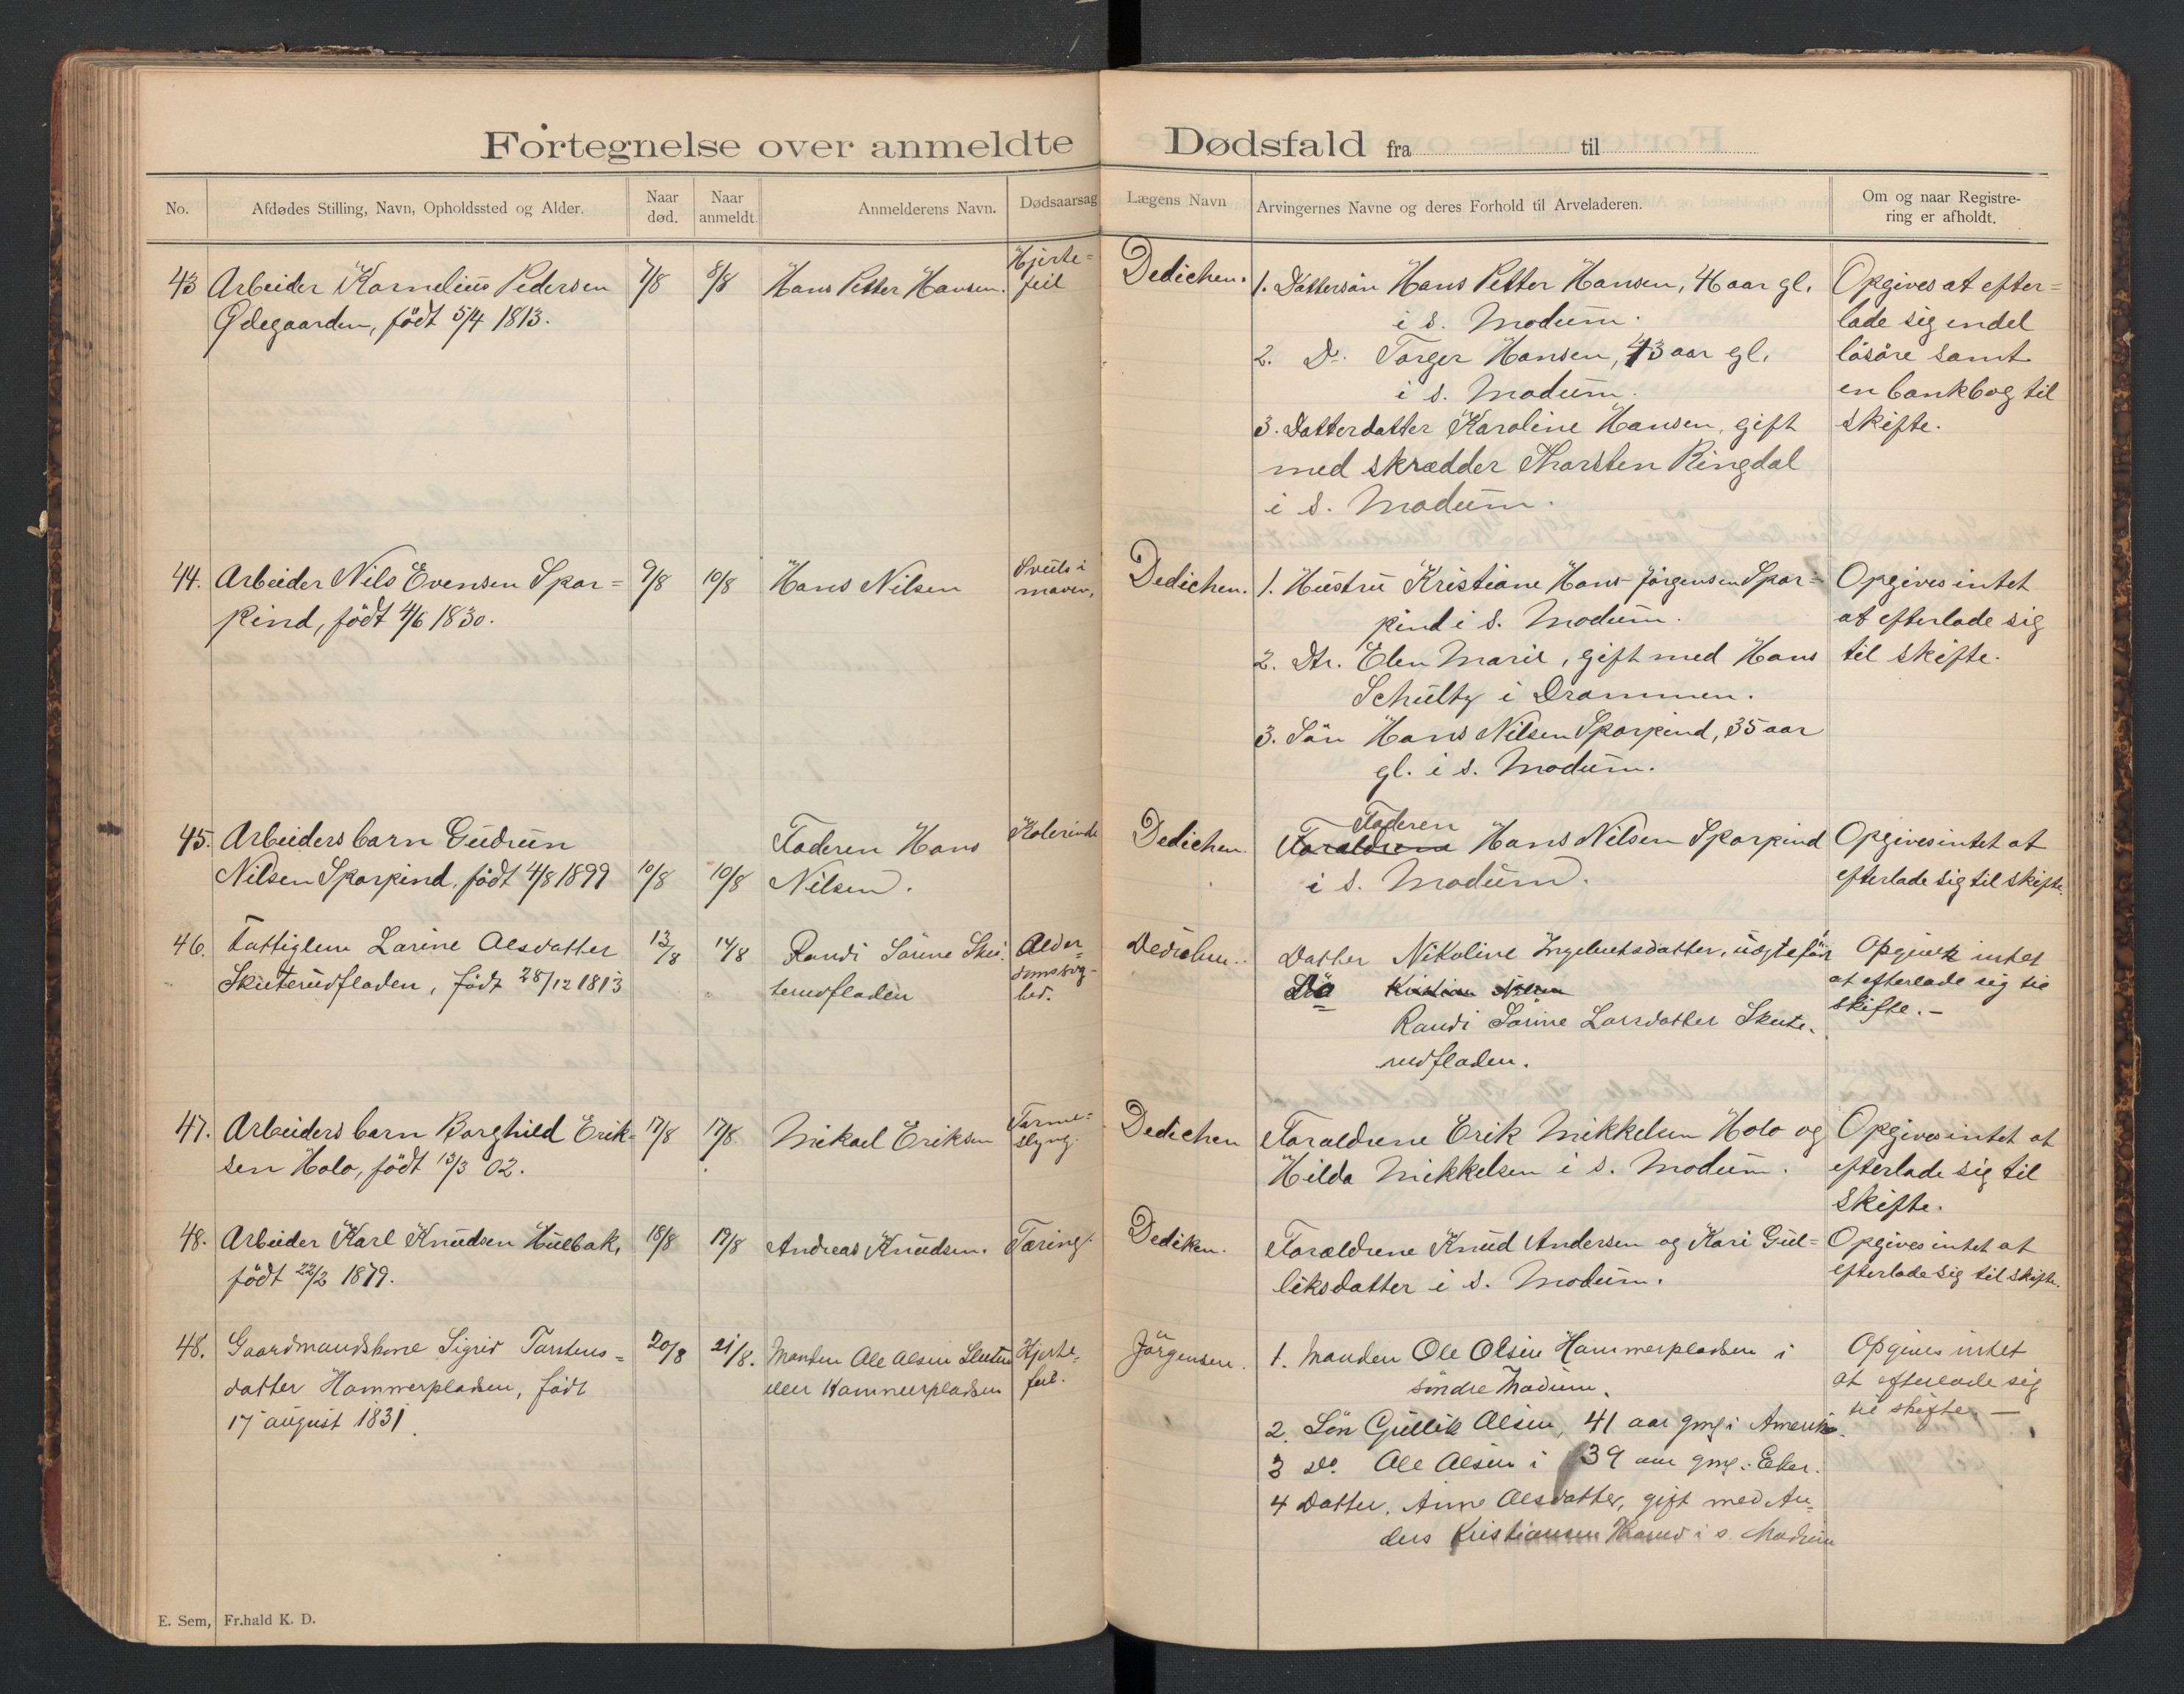 Fortegnelse over anmeldte Dødsfald fra til
No. Afdødes Stilling, Navn, Opholdssted og Alder. Naar død. Naar anmeldt. Anmelderens Navn. Dødsaarsag Lægens Navn Arvingernes Navne og deres Forhold til Arveladeren. Om og naar Registrering er afholdt.
43 Arbeider Kornelius Pedersen 7/8 8/8 Hans Petter Hansen. Hjerte=
feil
Ødegaarden, født 5/4 1813.
Dedichen. 1. Dattersøn Hans Petter Hansen, 46 aar gl.
i s. Modum.
2. Do. Torger Hansen, 43 aar gl.
i s. Modum.
3. Datterdatter Karoline Hansen, gift
med skrædder Thorsten Ringdal
i s. Modum.
Opgives at efter=
lade sig endel
løsøre samt
en bankbog til
skifte.
44. Arbeider Nils Evensen Skor= 9/8 10/8 Hans Nilsen
pind, født 4/6 1830.
Svuls i
maven,
Dedichen. 1. Hustru Kristiane Hans Jørgensen Skor=
pind i s. Modum.
2. Dtr. Elen Marie, gift med Hans
Schultz i Drammen.
3. Søn Hans Nilsen Skorpind, 35 aar
gl. i s. Modum.
Opgives intet
at efterlade sig
til skifte.
45. Arbeiders barn Gudrun
Nilsen Skorpind, født 4/8 1899 10/8 10/8
Faderen Hans
Nilsen.
Kolerinde
Dedichen Faderen
Forældrene Hans Nilsen Skorpind
i s. Modum.
Opgives intet at
efterlade sig til skifte.
46. Fattiglem Larine Olsdatter 13/8 14/8
Skuterudfladen, født 28/12 1813
Randi Sørine Sku
terudfladen
Alder
domssvag-
hed.
Dedichen.. Datter Nikoline Ingebretsdatter, ugift
Do Kristian Nilsen
Randi Sørine Larsdatter Skute-
rudfladen.
Opgives intet
at efterlade sig til
skifte.-
47. Arbeiders barn Borghild Erik- 17/8 17/8 Mikael Eriksen
sen Holo, født 13/3 02.
Tarme=
slyng.
Dedichen Forældrene Erik Mikkelsen Holo og
Hilda Mikkelsen i s. Modum.
Opgives intet at
efterlade sig til
skifte.
48. Arbeider Karl Knudsen Hulbak, 18/8 19/8 Andreas Knudsen. Tæring.
født 22/2 1879.
Dediken. Forældrene Knud Andersen og Kari Gul=
liksdatter i s. Modum.
Opgives intet at
efterlade sig til skifte.
48. Gaardmandskone Sigrid Torstens= 20/8 21/8.
datter Hammerpladsen, født
17 august 1831.
Manden Ole Olsen
eller Hammerpladsen
Hjerte-
feil.
Jørgensen. 1. Manden Ole Olsen Hammerpladsen i
søndre Modum.
2. Søn Gullik Olsen, 41 aar gmg i Amerika.
3 Do. Ole Olsen i 39 aar gmg. i Eker.
4 Datter. Anne Olsdatter, gift med An-
ders Kristiansen i s. Modum
Opgives intet
at efterlade sig
til skifte. —
E. Sem, Fr.hald K. D.